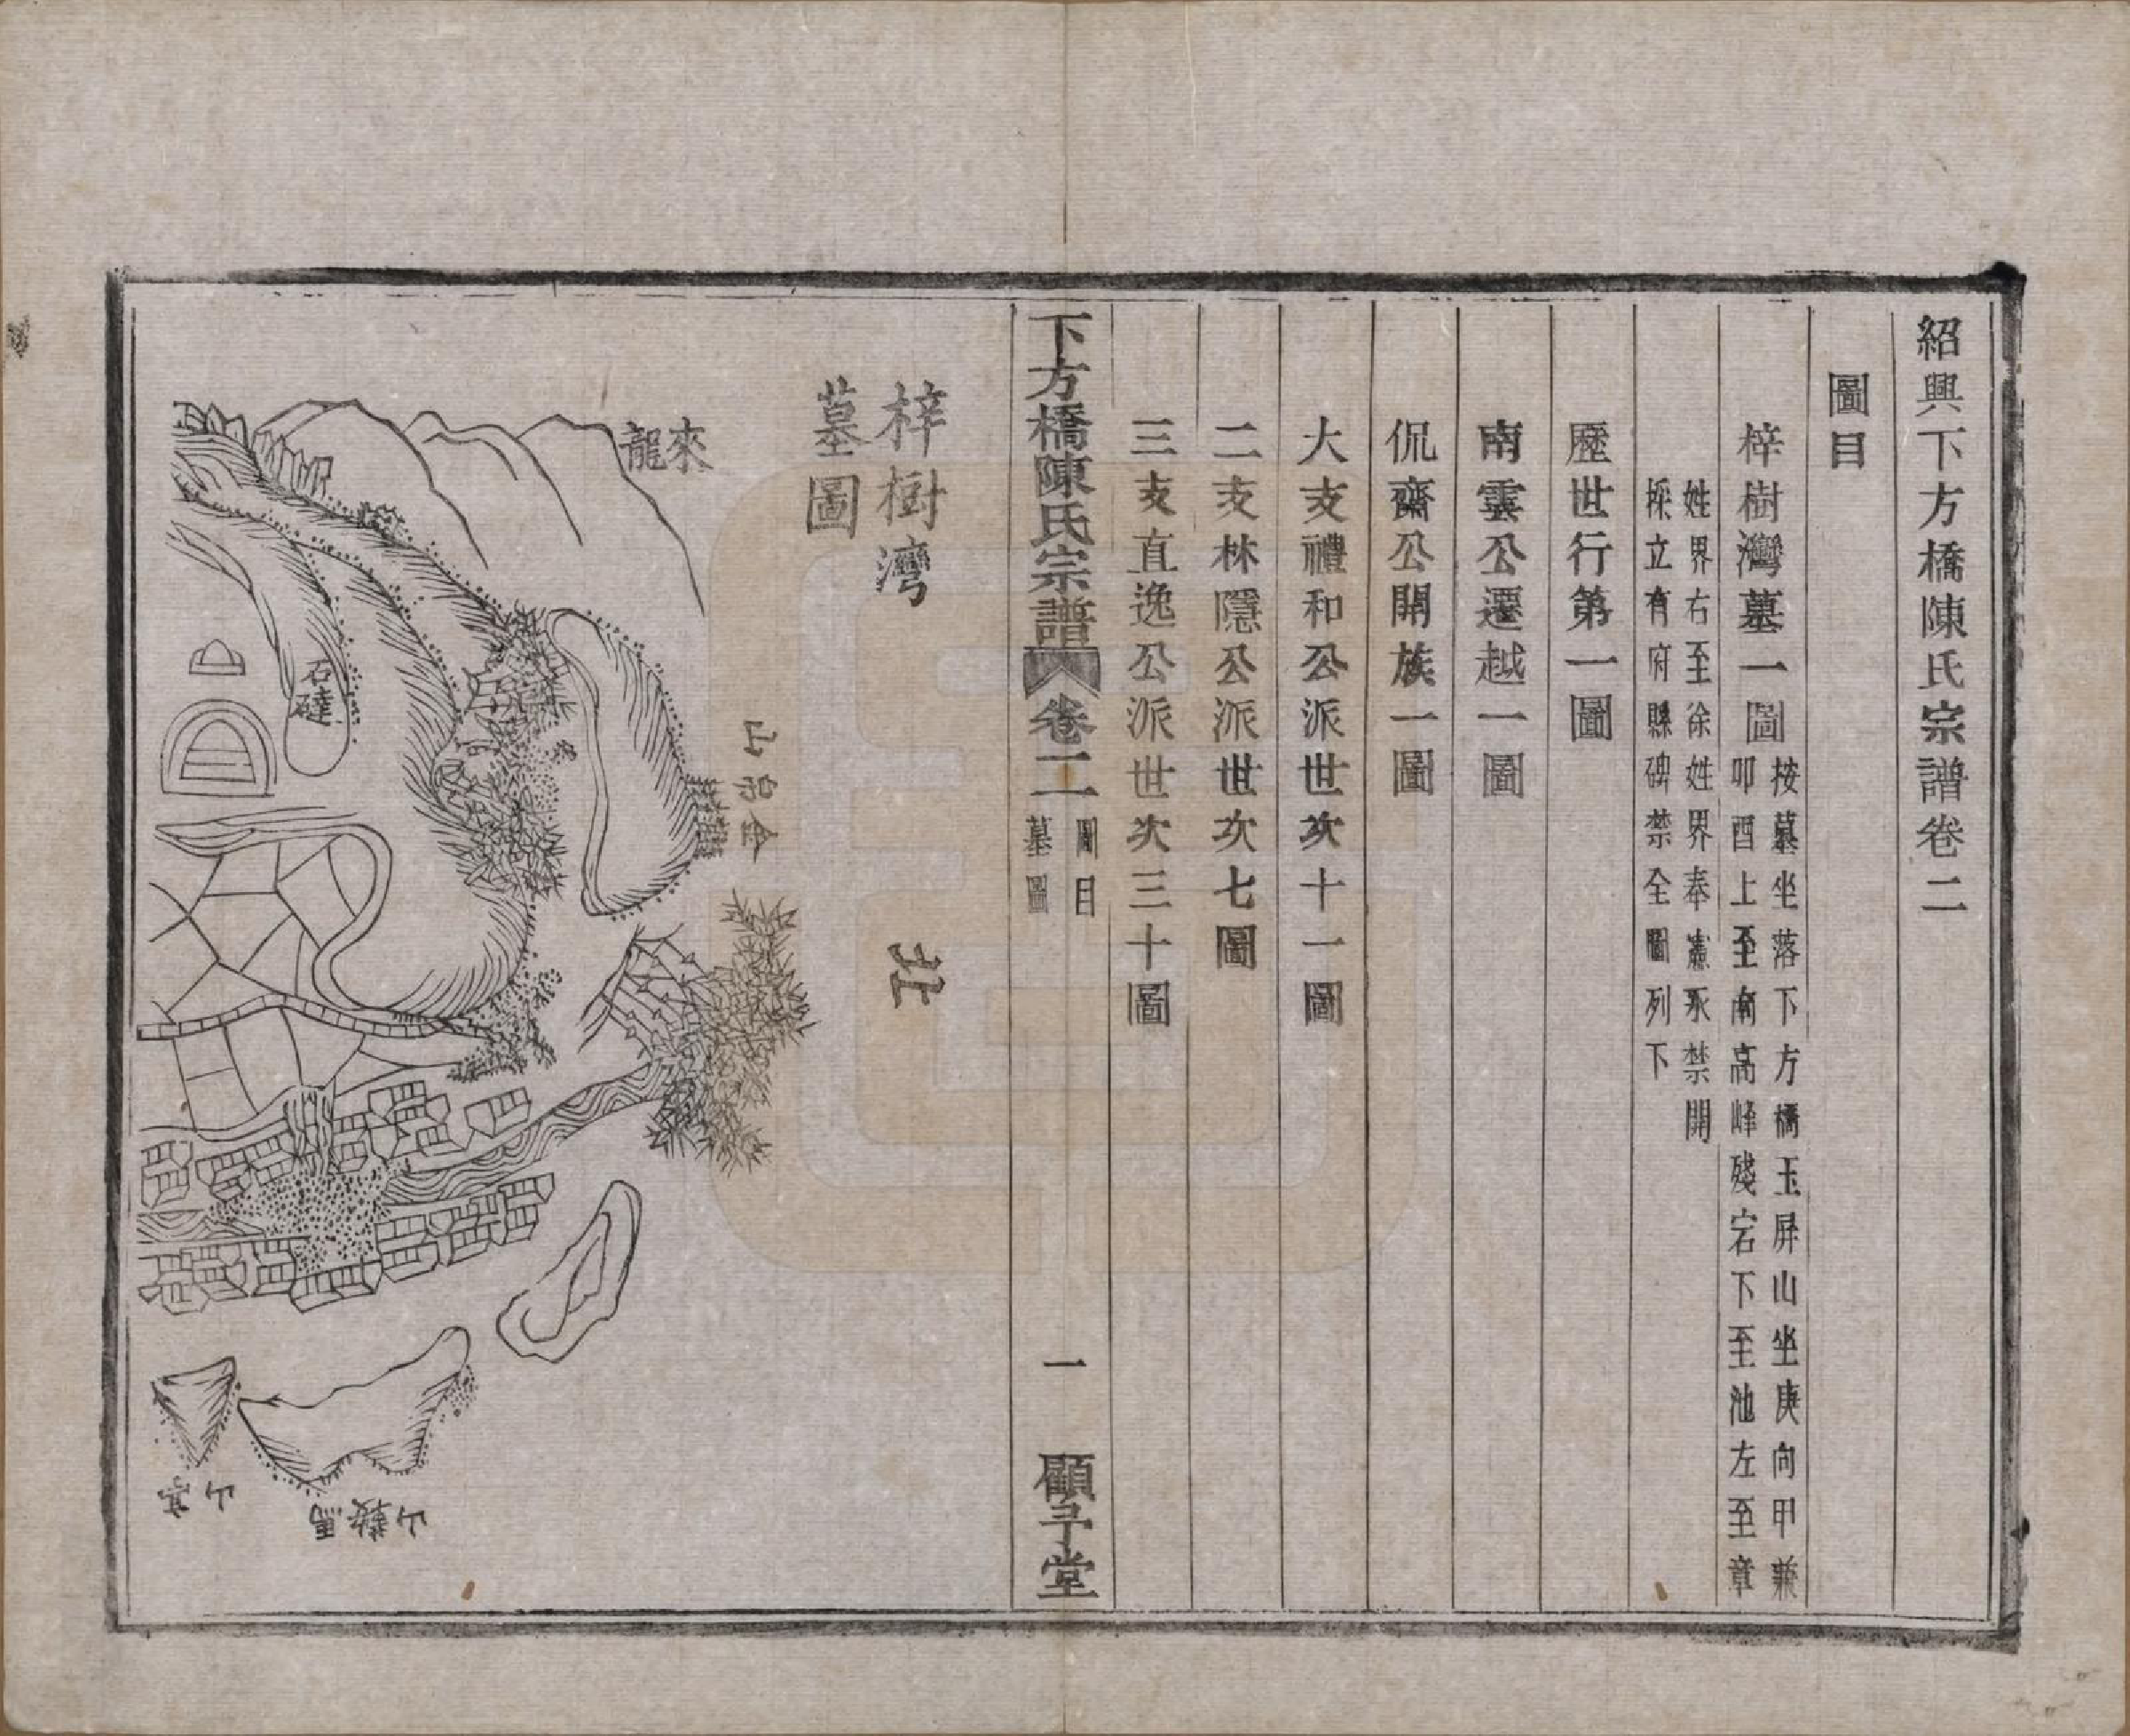 紹興下方橋陳氏宗譜卷二
圖目
梓樹灣墓一圖
按墓坐落下方橋玉屏山坐庚向甲兼
卯酉上至南高峰殘宕下至池左至章
姓界右至徐姓界奉憲永禁開
採立有府縣碑禁全圖列下
歷世行第一圖
南雲公遷越一圖
侃齋公開族一圖
大支禮和公派世次十一圖
二支林隱公派世次七圖
三支直逸公派世次三十圖
下方橋陳氏宗譜 卷二 圖目 墓圖 一 顧予堂
梓樹灣
墓圖
北
來龍
金帛山
石𥔲
馬鞍山
亭山